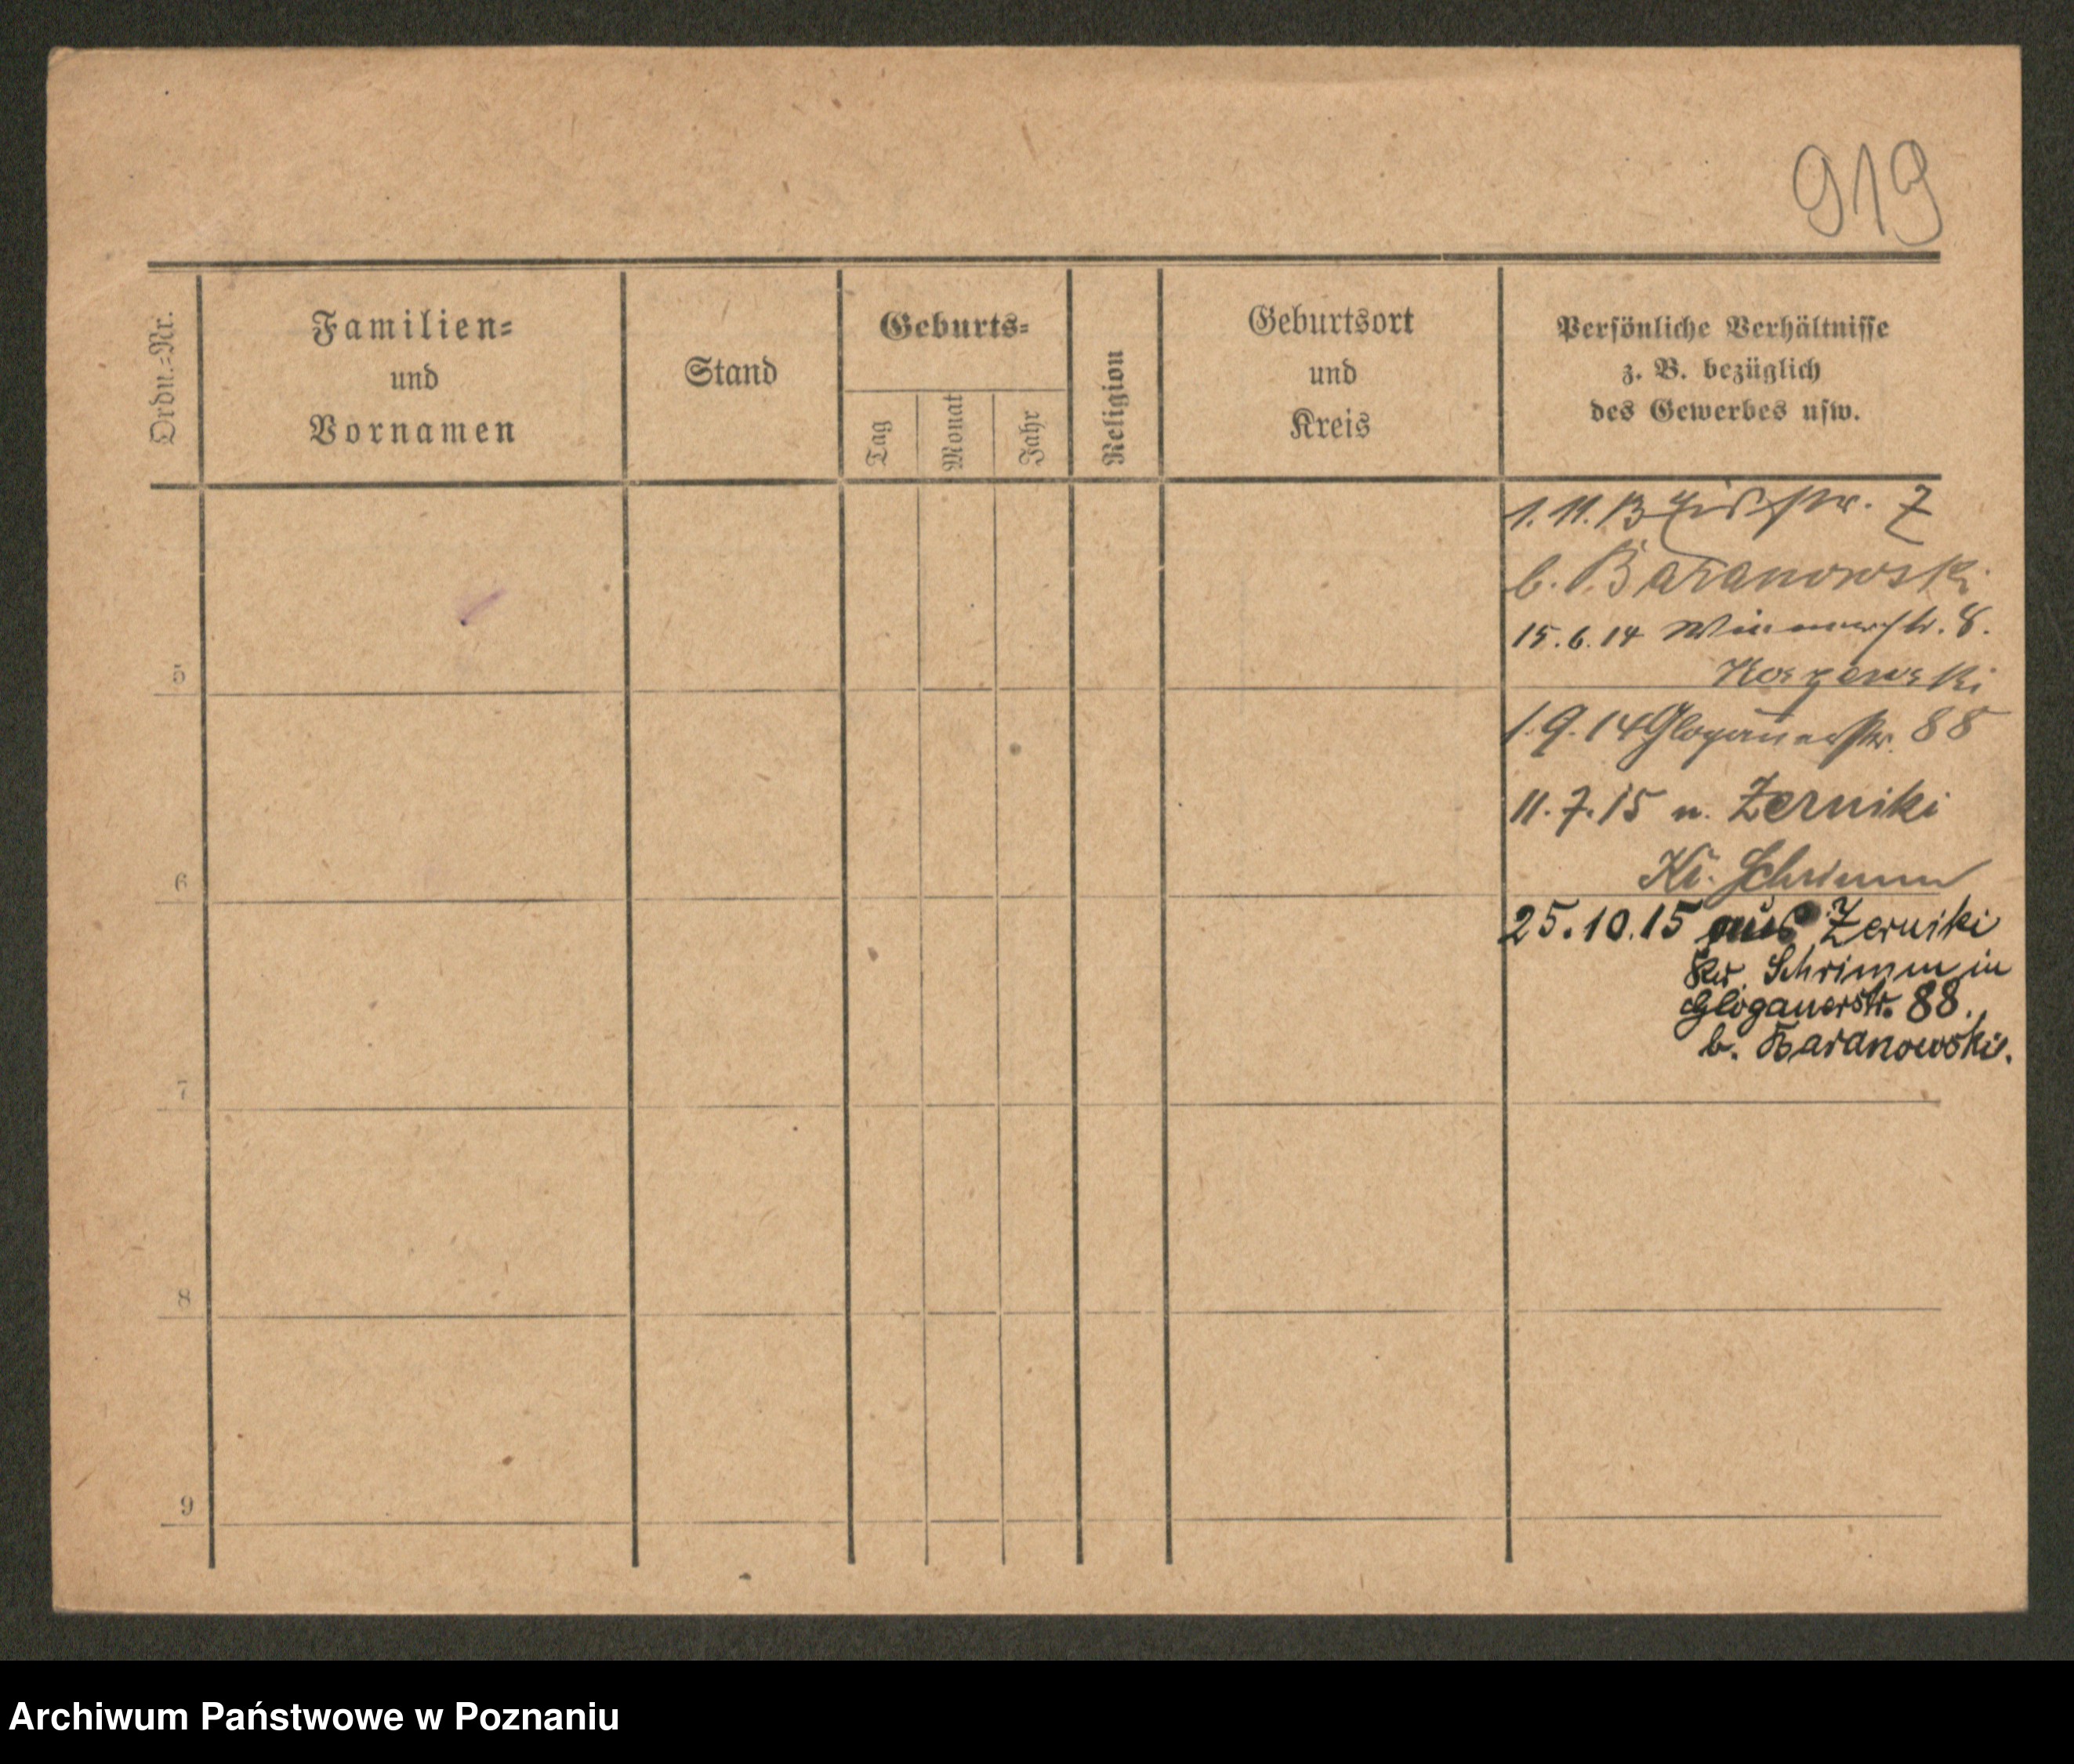 919
Ordn.=Nr.
Familien=
und
Vornamen
Stand
Geburts=
Tag
Monat
Jahr
Religion
Geburtsort
und
Kreis
Persönliche Verhältnisse
z. B. bezüglich
des Gewerbes usw.
1. 11. 13 7
b. Baranowski
15. 6. 14 8.
5
1. 9. 14 Glogauerstr. 88
11. 7. 15 n. Zerniki
Kr. Schrimm
6
25. 10. 15 aus Zerniki
Kr. Schrimm in
Glogauerstr. 88.
b. Baranowski.
7
8
9
Archiwum Państwowe w Poznaniu